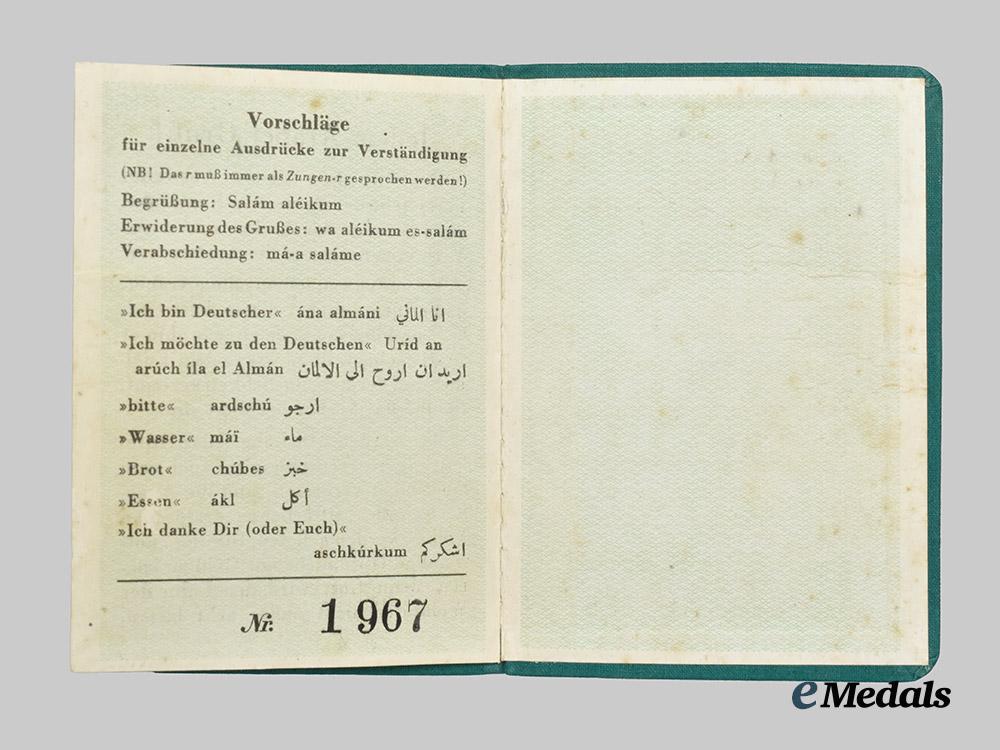 Vorschläge
für einzelne Ausdrücke zur Verständigung
(NB! Das r muß immer als Zungen-r gesprochen werden!)
Begrüßung: Salám aléikum
Erwiderung des Grußes: wa aléikum es-salám
Verabschiedung: má-a saláme
»Ich bin Deutscher« ána almáni انا الماني
»Ich möchte zu den Deutschen« Uríd an
arúch íla el Almán اريد ان اروح الى الالمان
»bitte« ardschú ارجو
»Wasser« máï ماء
»Brot« chúbes خبز
»Essen« ákl أكل
»Ich danke Dir (oder Euch)«
aschkúrkum اشكركم
Nr. 1967
eMedals